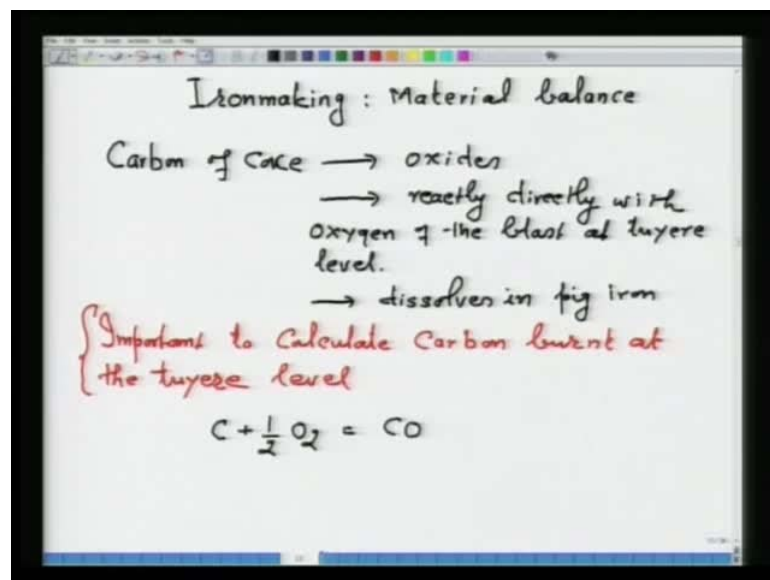 Ironmaking : Material balance
Carbon of Coke → oxides
→ reactly directly with
oxygen of the blast at tuyere
level.
→ dissolves in pig iron
Important to Calculate Carbon burnt at
the tuyere level
C + 1/2 O2 = CO